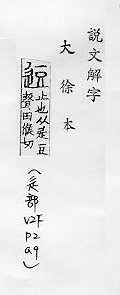 説文解字
大徐本
逗
止也从辵豆
聲田候切
(辵部 V2F P2 a9)